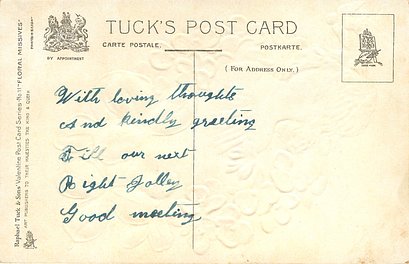 TUCK'S POST CARD
CARTE POSTALE.
POSTKARTE.
BY APPOINTMENT
(FOR ADDRESS ONLY.)
With loving thoughts
And kindly greeting
Till our next
Right Jolley
Good meeting
Raphael Tuck & Sons' Valentine Post Card Series No. "FLORAL MISSIVES"
ART PUBLISHERS TO THEIR MAJESTIES THE KING & QUEEN.